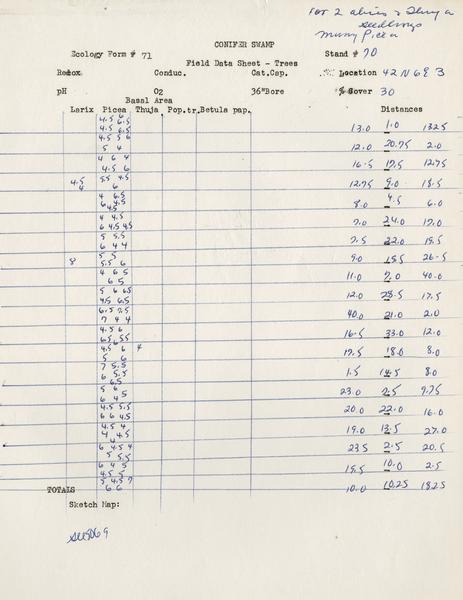 Many Picea
CONIFER SWAMP
Ecology Form # 71 Stand # 70
Field Data Sheet - Trees
Redox. Conduc. Cat.Cap. Location 42 N 6 E 3
pH O2 36"Bore % Cover 30
Basal Area Distances
Larix Picea Thuja Pop.tr. Betula pap.
4.5 6.5
4.5 6.5 13.0 1.0 13.25
4.5 5 6
5 4 12.0 20.75 2.0
4 6 4
4.5 6 16.5 17.5 12.75
4.5 5.5 4.5
4 6 12.75 9.0 18.5
4 6.5
6 4.5 8.0 4.5 6.0
4 4.5
6 4.5 4.5 7.0 24.0 17.0
5 5.5
6 4 4 7.5 22.0 19.5
5 5
8 5.5 6 9.0 15.5 26.5
4 6 5
6 5 11.0 7.0 40.0
5 6 6.5
4.5 6.5 12.0 28.5 17.5
6.5 7.5
7 4 4 40.0 21.0 2.0
4.5 6
6.5 6 5.5 16.5 33.0 12.0
4.5 6 4
5 6 17.5 18.0 8.0
7 5.5
6 5.5 1.5 14.5 8.0
6.5
5 6
6 4.5 23.0 7.5 9.75
4.5 5.5
6 6 4.5 20.0 22.0 16.0
4.5 4
4 6 4.5 19.0 13.5 27.0
6 4.5 4
5 5.5 23.5 2.5 20.5
6 4 5
4.5 5 19.5 10.0 2.5
5 4.5 7
TOTALS 6 6 10.0 10.25 18.25
Sketch Map: